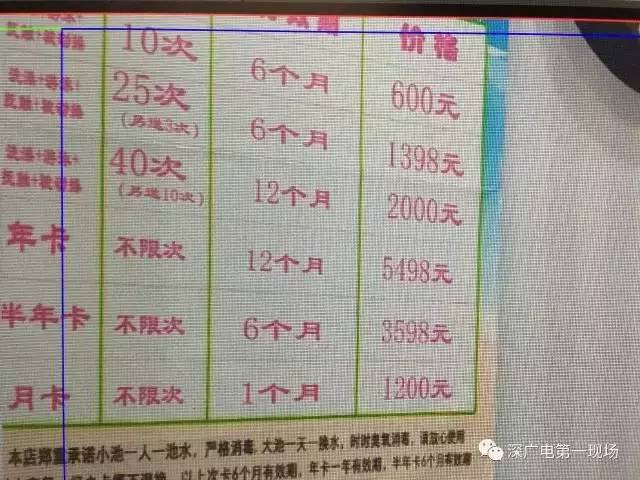 价格
10次 6个月 600元
洗澡+游泳+
抚触+被动操 25次 6个月 1398元
(另送3次)
洗澡+游泳+
抚触+被动操 40次 12个月 2000元
(另送10次)
年卡 不限次 12个月 5498元
半年卡 不限次 6个月 3598元
月卡 不限次 1个月 1200元
本店郑重承诺小池一人一池水，严格消毒，大池一天一换水，时时臭氧消毒，请放心使用
以上次卡6个月有效期，年卡一年有效期，半年卡6个月有效期
深广电第一现场